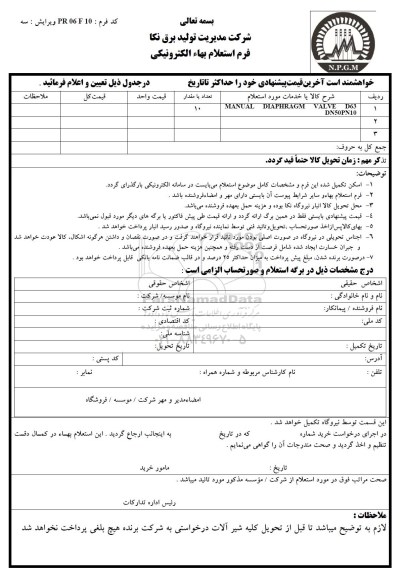 بسمه تعالی
کد فرم : PR 06 F 10 ویرایش : سه
شرکت مدیریت تولید برق نکا
فرم استعلام بهاء الکترونیکی
N.P.G.M
خواهشمند است آخرین قیمت پیشنهادی خود را حداکثر تا تاریخ درجدول ذیل تعیین و اعلام فرمائید .
ردیف شرح کالا یا خدمات مورد استعلام تعداد یا مقدار قیمت واحد قیمت کل ملاحظات
۱ MANUAL DIAPHRAGM VALVE D63 DN50PN10 ۱۰
۲
۳
جمع کل به حروف:
تذکر مهم : زمان تحویل کالا حتماً قید گردد.
توضیحات:
۱- اسکن تکمیل شده این فرم و مشخصات کامل موضوع استعلام می‌بایست در سامانه الکترونیکی بارگذاری گردد.
۲- فرم استعلام بهاءو سایر شرایط پیوست آن بایستی دارای مهر و امضاءفروشنده باشد .
۳- محل تحویل کالا انبار نیروگاه نکا بوده و هزینه حمل بعهده فروشنده می‌باشد.
۴- قیمت پیشنهادی بایستی فقط در همین برگ ارائه گردد و ارائه قیمت طی پیش فاکتور یا برگه های دیگر مورد قبول نمی‌باشد.
۵- بهای‌کالاپس‌ازاخذ صورتحساب ،تحویل‌وتائید فنی توسط نماینده نیروگاه و صدور رسید انبار پرداخت خواهد شد .
۶- اجناس تحویلی در نیروگاه در صورت اصلی بودن مورد تائید قرار خواهند گرفت و در صورت نقصان و داشتن هرگونه اشکال، کالا عودت خواهد شد
و جبران خسارت ایجاد شده شامل فرصت از دست رفته و همچنین هزینه حمل بعهده فروشنده می‌باشد .
۷- درصورت برنده شدن، مبلغ پیش پرداخت به میزان حداکثر ۲۵ درصد و در قالب ضمانت نامه بانکی قابل پرداخت خواهد بود .
درج مشخصات ذیل در برگه استعلام و صورتحساب الزامی است :
اشخاص حقیقی اشخاص حقوقی
نام و نام خانوادگی : نام موسسه/ شرکت :
نام فروشنده / پیمانکار: شماره ثبت شرکت :
کد ملی: کد اقتصادی :
شناسه ملی :
تاریخ تکمیل : تاریخ تحویل:
آدرس: کد پستی :
تلفن : نام کارشناس مربوطه و شماره همراه : نمابر :
امضاءمدیر و مهر شرکت / موسسه / فروشگاه
این قسمت توسط نیروگاه تکمیل خواهد شد .
در اجرای درخواست خرید شماره که در تاریخ به اینجانب ارجاع گردید . این استعلام بهاء در کمال دقت
تنظیم و اخذ گردید و صحت مندرجات آن را گواهی می‌نمایم.
تاریخ : مامور خرید
صحت مراتب فوق در مورد استعلام از شرکت / مؤسسه مذکور مورد تائید میباشد .
رئیس اداره تدارکات
ملاحظات :
لازم به توضیح میباشد تا قبل از تحویل کلیه شیر آلات درخواستی به شرکت برنده هیچ بلغی پرداخت نخواهد شد